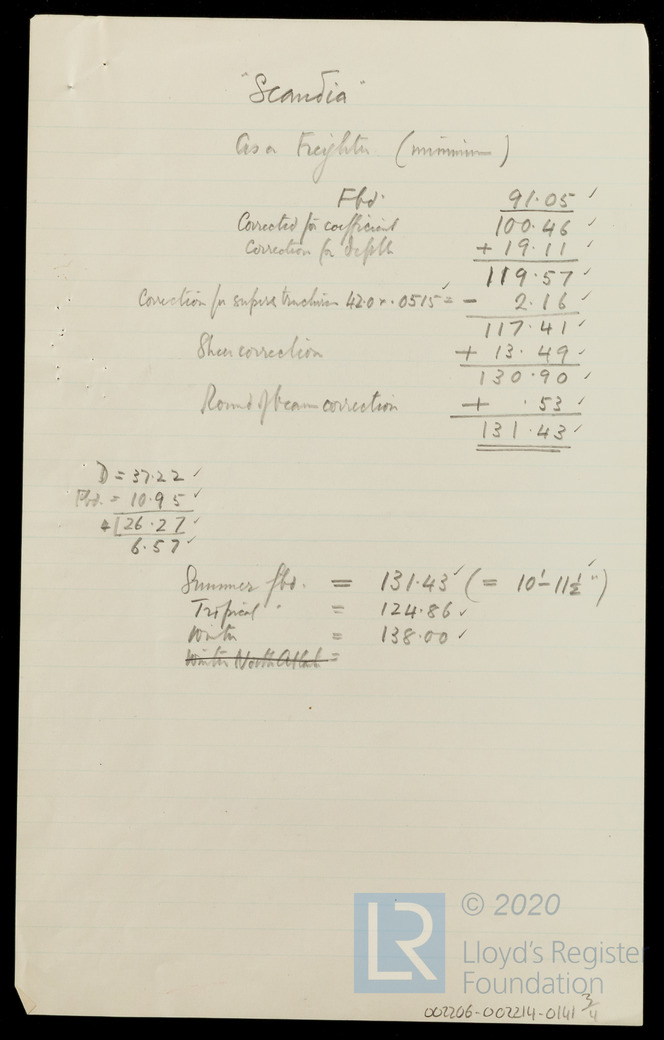 "Scandia"
As a Freighter (minimum)
Fbd. 91.05 ✓
Corrected for coefficient 100.46 ✓
Correction for depth + 19.11 ✓
119.57 ✓
Correction for superstructures 42.0 x .0515 = - 2.16 ✓
117.41 ✓
Sheer correction + 13.49 ✓
130.90 ✓
Round of beam correction + .53 ✓
131.43 ✓
D = 37.22 ✓
Fbd. = 10.95 ✓
4 26.27 ✓
6.57 ✓
Summer fbd. = 131.43 ✓ (= 10'-11½")
Tropical " = 124.86 ✓
Winter = 138.00 ✓
Winter North Atlat =
LR
© 2020
Lloyd's Register
Foundation
002206-002214-0141 3/4